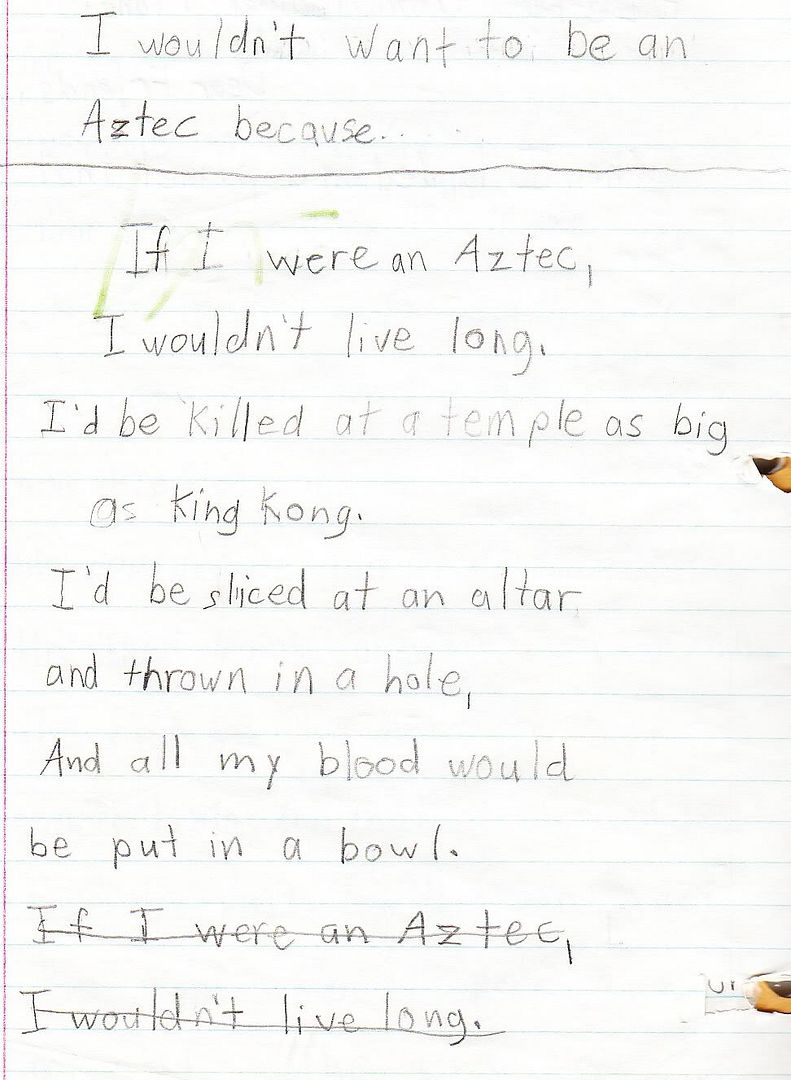 I wouldn't want to be an
Aztec because.....
If I were an Aztec,
I wouldn't live long.
I'd be killed at a temple as big
as king kong.
I'd be sliced at an altar
and thrown in a hole,
And all my blood would
be put in a bowl.
If I were an Aztec,
I wouldn't live long.